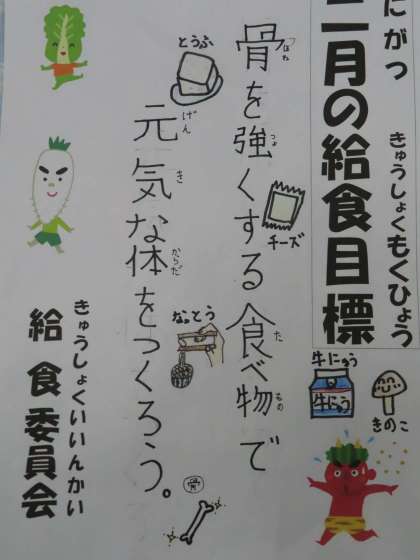 にがつ きゅうしょくもくひょう
二月の給食目標
ほね つよ た もの
骨を強くする食べ物で
げん き からだ
元気な体をつくろう。
とうふ
チーズ
なっとう
牛にゅう
牛にゅう
きのこ
骨
きゅうしょくいいんかい
給食委員会